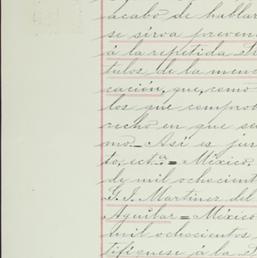 acabo de hablar
se sirva preveni
á la repetida S
tulos de la men
cación, que, como
los que comprob
recho en que se
mo.= Así es jus
to, ect.ª= México,
de mil ochocient
G. I. Martinez del
Aguilar = México
mil ochocientos
tifíquese á la S